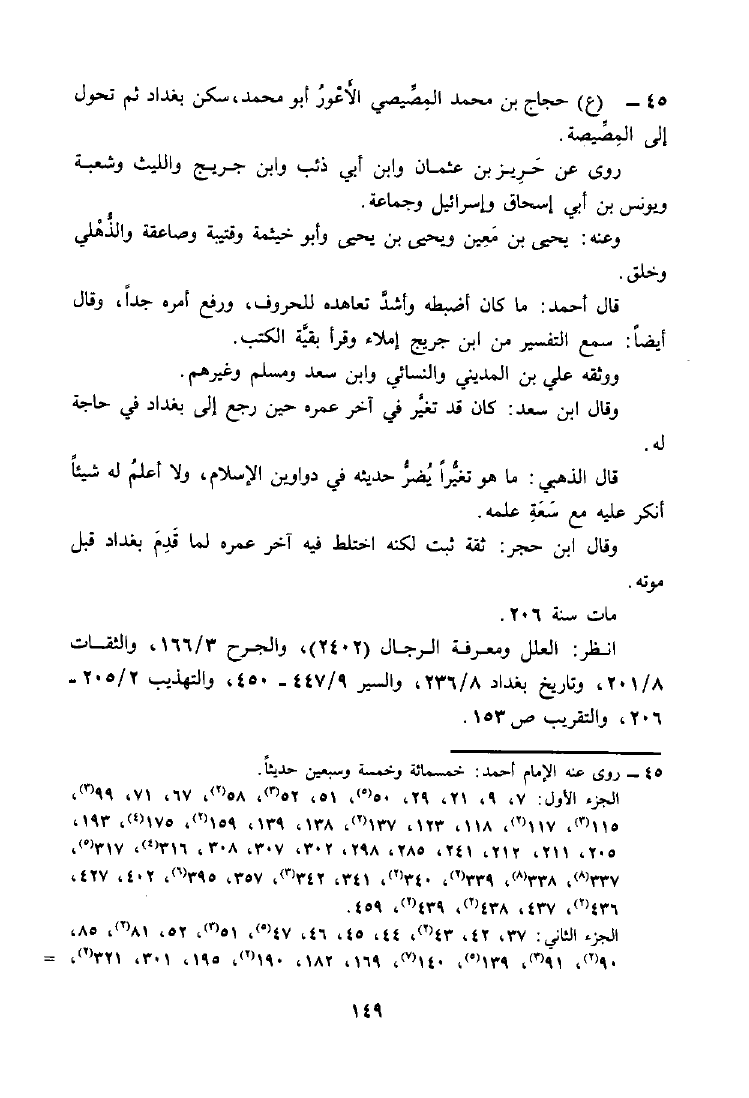 ٤٥ - (ع) حجاج بن محمد المِصِّيصي الأَعْورُ أبو محمد، سكن بغداد ثم تحول
إلى المِصِّيصة.
روى عن حَرِيز بن عثمان وابن أبي ذئب وابن جريج والليث وشعبة
ويونس بن أبي إسحاق وإسرائيل وجماعة.
وعنه: يحيى بن مَعِين ويحيى بن يحيى وأبو خيثمة وقتيبة وصاعقة والذُّهْلي
وخلق.
قال أحمد: ما كان أضبطه وأشدَّ تعاهده للحروف، ورفع أمره جداً، وقال
أيضاً: سمع التفسير من ابن جريج إملاء وقرأ بقيَّة الكتب.
ووثقه علي بن المديني والنسائي وابن سعد ومسلم وغيرهم.
وقال ابن سعد: كان قد تغيَّر في آخر عمره حين رجع إلى بغداد في حاجة
له.
قال الذهبي: ما هو تغيُّراً يُضرُّ حديثه في دواوين الإسلام، ولا أعلمُ له شيئاً
أنكر عليه مع سَعَةِ علمه.
وقال ابن حجر: ثقة ثبت لكنه اختلط فيه آخر عمره لما قَدِمَ بغداد قبل
موته.
مات سنة ٢٠٦.
انظر: العلل ومعرفة الرجال (٢٤٠٢)، والجرح ١٦٦/٣، والثقات
٢٠١/٨، وتاريخ بغداد ٢٣٦/٨، والسير ٤٤٧/٩ - ٤٥٠، والتهذيب ٢٠٥/٢ -
٢٠٦، والتقريب ص ١٥٣.
٤٥ - روى عنه الإمام أحمد: خمسمائة وخمسة وسبعين حديثاً.
الجزء الأول: ٧، ٩، ٢١، ٢٩، ٥٠(٥)، ٥١، ٥٢(٣)، ٥٨(٢)، ٦٧، ٧١، ٩٩(٣)،
١١٥(٣)، ١١٧(٢)، ١١٨، ١٢٣، ١٣٧(٢)، ١٣٨، ١٣٩، ١٥٩(٢)، ١٧٥(٤)، ١٩٣،
٢٠٥، ٢١١، ٢١٢، ٢٤١، ٢٨٥، ٢٩٨، ٣٠٢، ٣٠٧، ٣٠٨، ٣١٦(٤)، ٣١٧(٥)،
٣٣٧(٨)، ٣٣٨(٨)، ٣٣٩(٢)، ٣٤٠(٢)، ٣٤١، ٣٤٢(٣)، ٣٥٧، ٣٩٥(٦)، ٤٠٢، ٤٢٧،
٤٣٦(٢)، ٤٣٧، ٤٣٨(٢)، ٤٣٩(٢)، ٤٥٩.
الجزء الثاني: ٣٧، ٤٢، ٤٣(٢)، ٤٤، ٤٥، ٤٦، ٤٧(٥)، ٥١(٣)، ٥٢، ٨١(٢)، ٨٥،
٩٠(٢)، ٩١(٣)، ١٣٩(٥)، ١٤٠(٧)، ١٦٩، ١٨٢، ١٩٠(٢)، ١٩٥، ٣٠١، ٣٢١(٢)، =
١٤٩